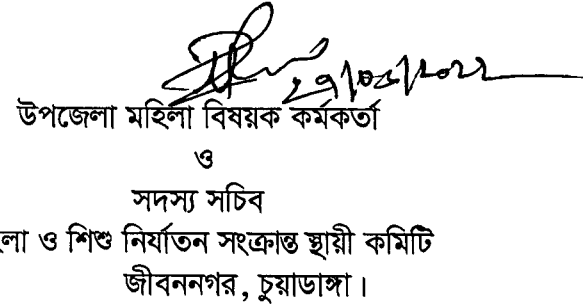 উপজেলা মহিলা বিষয়ক কর্মকর্তা
ও
সদস্য সচিব
লা ও শিশু নির্যাতন সংক্রান্ত স্থায়ী কমিটি
জীবননগর, চুয়াডাঙ্গা।